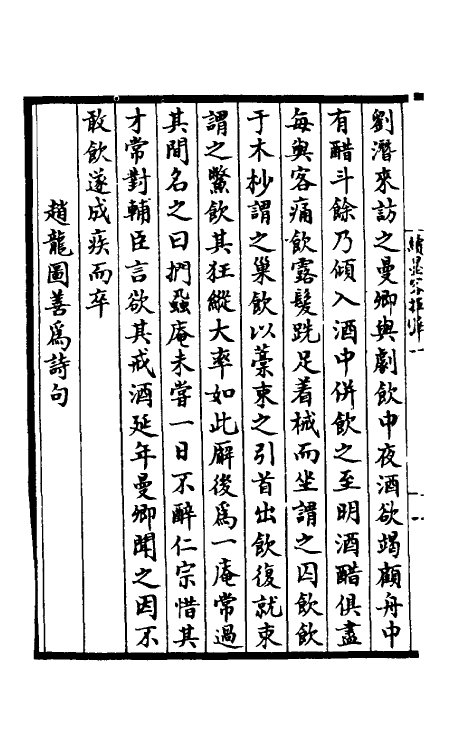 劉潛來訪之曼卿與劇飲中夜酒欲竭顧舟中
有醋斗餘乃傾入酒中併飲之至明酒醋俱盡
每與客痛飲露髮跣足着械而坐謂之囚飲飲
于木杪謂之巢飲以藁束之引首出飲復就束
謂之鱉飲其狂縱大率如此廨後爲一庵常過
其間名之曰捫蝨庵未嘗一日不醉仁宗惜其
才常對輔臣言欲其戒酒延年曼卿聞之因不
敢飲遂成疾而卒
趙龍圖善爲詩句